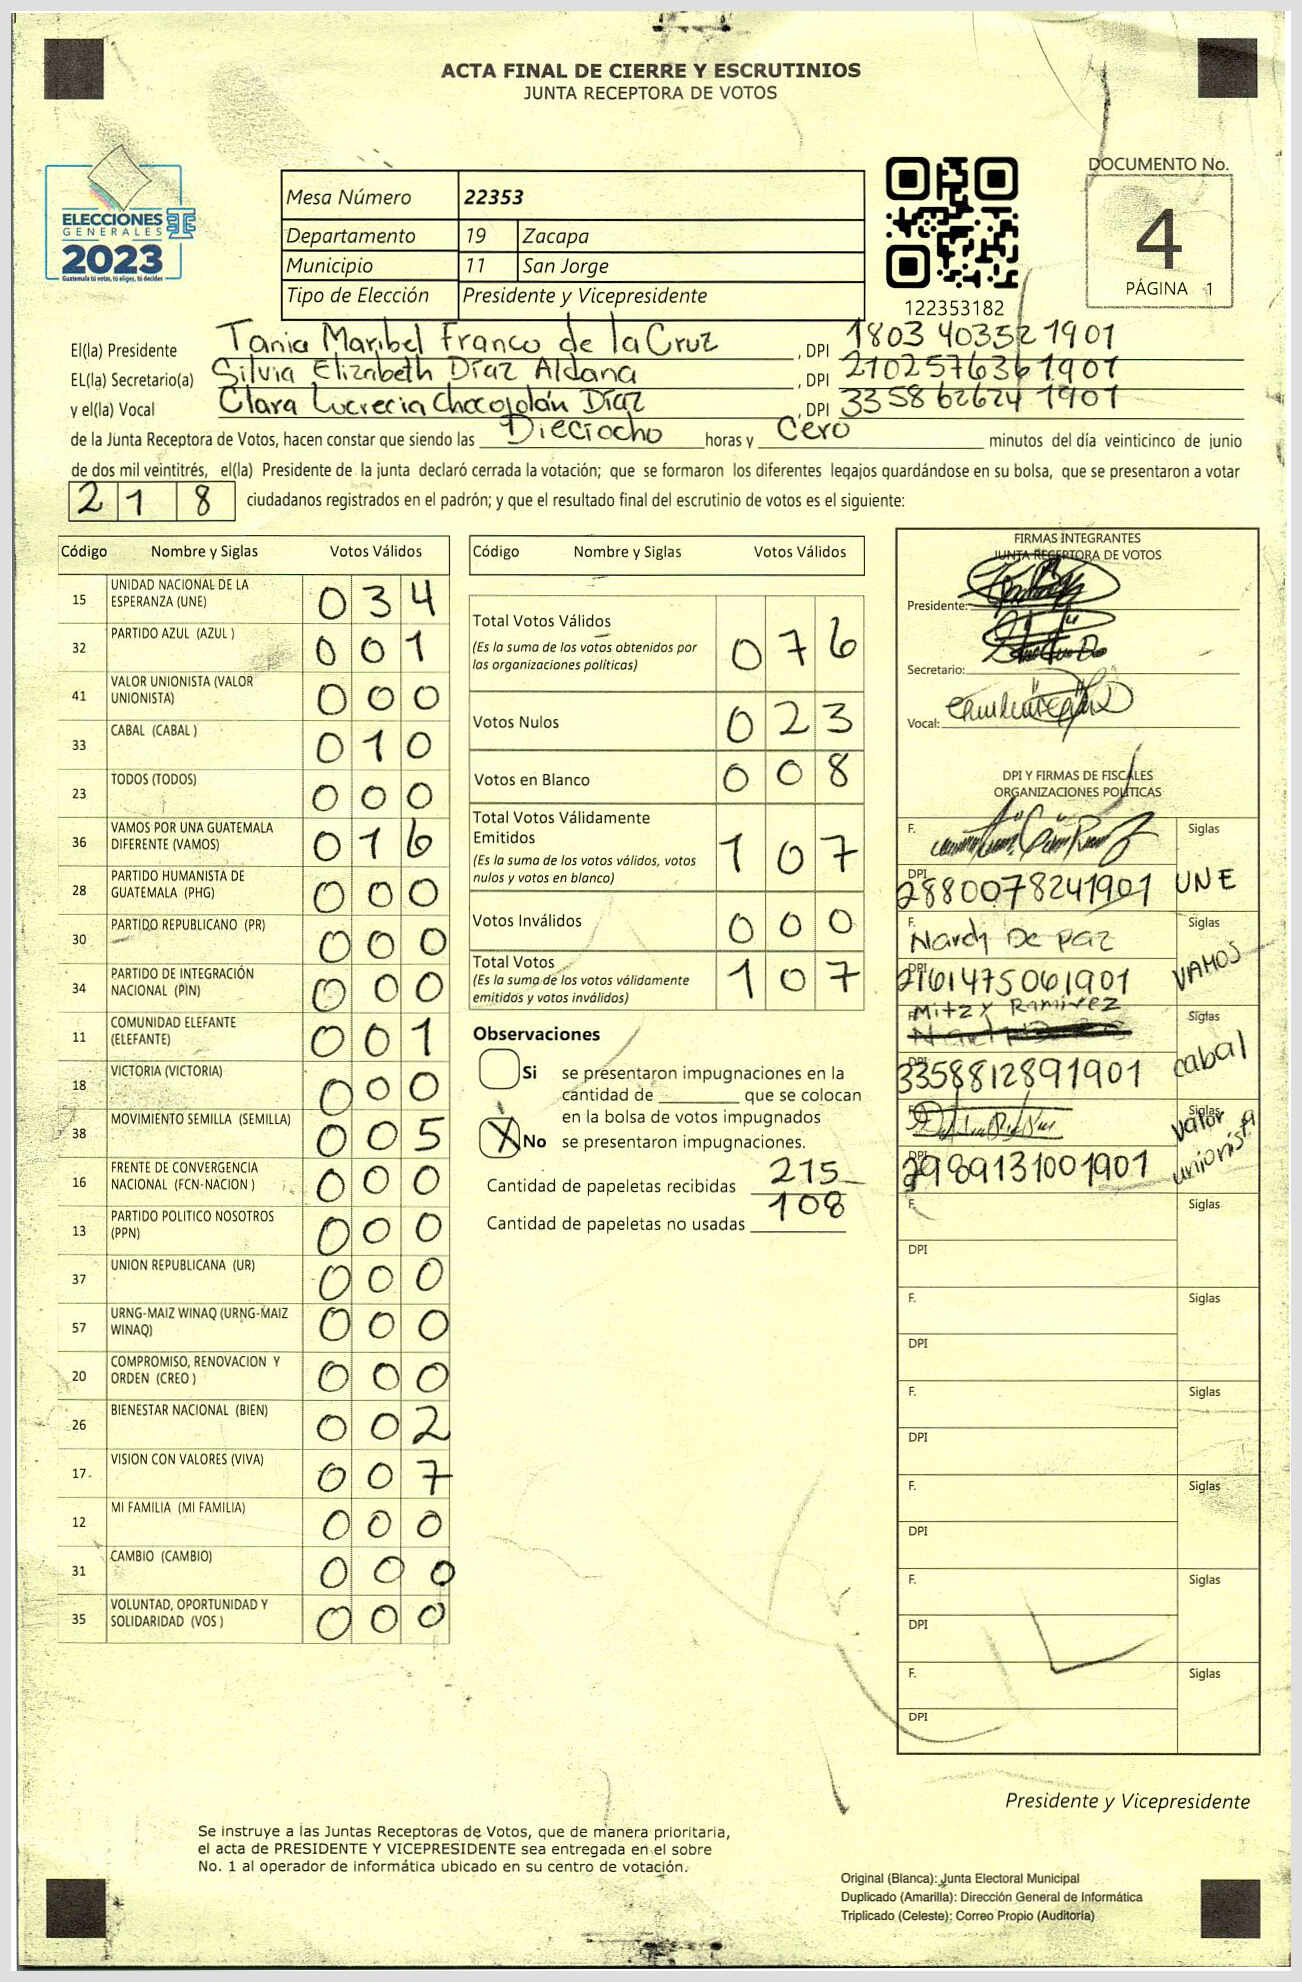 ACTA FINAL DE CIERRE Y ESCRUTINIOS
JUNTA RECEPTORA DE VOTOS
ELECCIONES
GENERALES
2023
Guatemala tú votas, tú eliges, tú decides
Mesa Número 22353
Departamento 19 Zacapa
Municipio 11 San Jorge
Tipo de Elección Presidente y Vicepresidente
122353182
DOCUMENTO No.
4
PÁGINA 1
El(la) Presidente Tania Maribel Franco de la Cruz, DPI 1803 40352 1901
EL(la) Secretario(a) Silvia Elizabeth Díaz Aldana, DPI 2102576361901
y el(la) Vocal Clara Lucrecia Chocojolán Díaz, DPI 3358 62624 1901
de la Junta Receptora de Votos, hacen constar que siendo las Dieciocho horas y Cero minutos del día veinticinco de junio
de dos mil veintitrés, el(la) Presidente de la junta declaró cerrada la votación; que se formaron los diferentes legajos quardándose en su bolsa, que se presentaron a votar
2 1 8 ciudadanos registrados en el padrón; y que el resultado final del escrutinio de votos es el siguiente:
Código Nombre y Siglas Votos Válidos
15 UNIDAD NACIONAL DE LA ESPERANZA (UNE) 0 3 4
32 PARTIDO AZUL (AZUL ) 0 0 1
41 VALOR UNIONISTA (VALOR UNIONISTA) 0 0 0
33 CABAL (CABAL ) 0 1 0
23 TODOS (TODOS) 0 0 0
36 VAMOS POR UNA GUATEMALA DIFERENTE (VAMOS) 0 1 6
28 PARTIDO HUMANISTA DE GUATEMALA (PHG) 0 0 0
30 PARTIDO REPUBLICANO (PR) 0 0 0
34 PARTIDO DE INTEGRACIÓN NACIONAL (PIN) 0 0 0
11 COMUNIDAD ELEFANTE (ELEFANTE) 0 0 1
18 VICTORIA (VICTORIA) 0 0 0
38 MOVIMIENTO SEMILLA (SEMILLA) 0 0 5
16 FRENTE DE CONVERGENCIA NACIONAL (FCN-NACION ) 0 0 0
13 PARTIDO POLITICO NOSOTROS (PPN) 0 0 0
37 UNION REPUBLICANA (UR) 0 0 0
57 URNG-MAIZ WINAQ (URNG-MAIZ WINAQ) 0 0 0
20 COMPROMISO, RENOVACION Y ORDEN (CREO ) 0 0 0
26 BIENESTAR NACIONAL (BIEN) 0 0 2
17 VISION CON VALORES (VIVA) 0 0 7
12 MI FAMILIA (MI FAMILIA) 0 0 0
31 CAMBIO (CAMBIO) 0 0 0
35 VOLUNTAD, OPORTUNIDAD Y SOLIDARIDAD (VOS ) 0 0 0
Código Nombre y Siglas Votos Válidos
Total Votos Válidos 0 7 6
(Es la suma de los votos obtenidos por
las organizaciones políticas)
Votos Nulos 0 2 3
Votos en Blanco 0 0 8
Total Votos Válidamente
Emitidos 1 0 7
(Es la suma de los votos válidos, votos
nulos y votos en blanco)
Votos Inválidos 0 0 0
Total Votos 1 0 7
(Es la suma de los votos válidamente
emitidos y votos inválidos)
Observaciones
Si se presentaron impugnaciones en la
cantidad de ________ que se colocan
en la bolsa de votos impugnados
X No se presentaron impugnaciones.
Cantidad de papeletas recibidas 215
Cantidad de papeletas no usadas 108
FIRMAS INTEGRANTES
JUNTA RECEPTORA DE VOTOS
Presidente:
Secretario:
Vocal:
DPI Y FIRMAS DE FISCALES
ORGANIZACIONES POLÍTICAS
F. Siglas
DPI 2880078241901 UNE
F. Nardy De paz Siglas
DPI 2161475061901 VAMOS
F. Mitzy Ramirez Siglas
DPI 3358812891901 cabal
F. Siglas
DPI 2989131001901 valor unionista
F. Siglas
DPI
F. Siglas
DPI
F. Siglas
DPI
F. Siglas
DPI
F. Siglas
DPI
F. Siglas
DPI
Presidente y Vicepresidente
Se instruye a las Juntas Receptoras de Votos, que de manera prioritaria,
el acta de PRESIDENTE Y VICEPRESIDENTE sea entregada en el sobre
No. 1 al operador de informática ubicado en su centro de votación.
Original (Blanca): Junta Electoral Municipal
Duplicado (Amarilla): Dirección General de Informática
Triplicado (Celeste): Correo Propio (Auditoría)